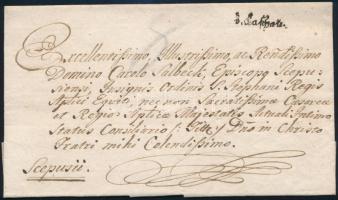 v. Kaschau.
Excellentissimo, Illustrissimo, ac Rendissimo
Domino Carolo Salbeck, Episcopo Scepu-
siensi, Insignis Ordinis S. Stephani Regis
Aplici Equiti, nec non Sacratissimæ Cæsareæ
et Regio Aplicæ Majestatis Actuali Intimo
Status Consiliario /: Titt :/ Dño in Christo
Fratri mihi Colendissimo.
Scepusii.